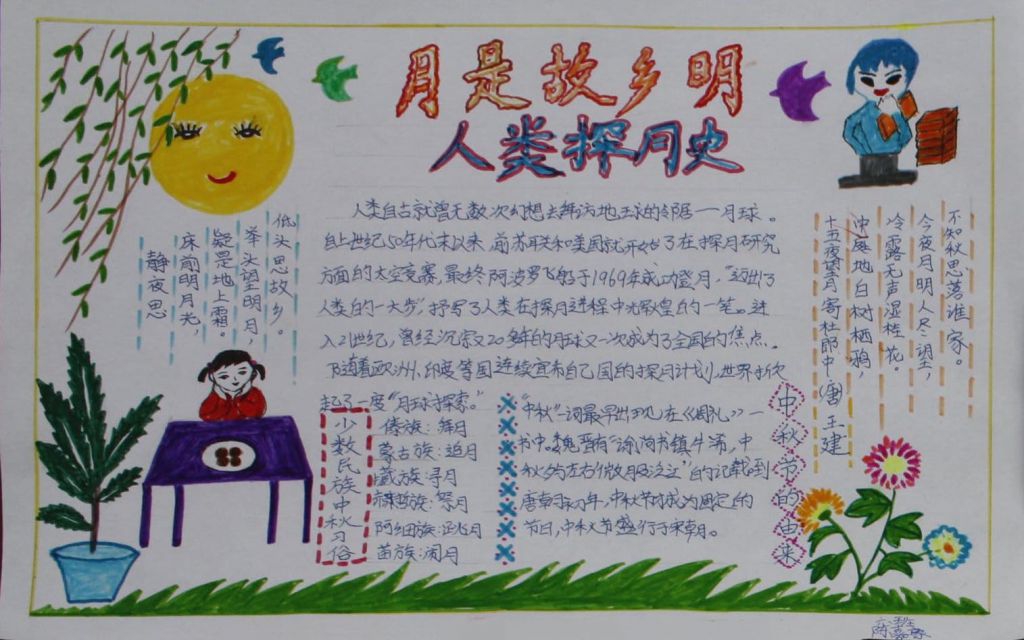 月是故乡明
人类探月史
低头思故乡。
举头望明月，
疑是地上霜。
床前明月光，
静夜思
人类自古就曾无数次幻想去拜访地球的邻居——月球。
自上世纪50年代末以来，前苏联和美国就开始了在探月研究
方面的太空竞赛，最终阿波罗飞船于1969年成功登月，“迈出了
人类的一大步”抒写了人类在探月进程中光辉煌的一笔。进
入21世纪，曾经沉寂20多年的月球又一次成为了全国的焦点。
随着欧洲、印度等国连续宣布自己国的探月计划，世界掀
起了一度“月球探索。”
不知秋思落谁家。
今夜月明人尽望，
冷露无声湿桂花。
中庭地白树栖鸦，
十五夜望月寄杜郎中 唐 王建
少数民族中秋习俗
傣族：拜月
蒙古族：追月
藏族：寻月
赫哲族：祭月
阿细族：跳月
苗族：闹月
“中秋”一词最早出现在《周礼》一
书中。魏晋有“谕尚书镇牛渚，中
秋夕与左右微服泛江”的记载。到
唐朝初年，中秋节才成为固定的
节日，中秋节盛行于宋朝。
中秋节的由来